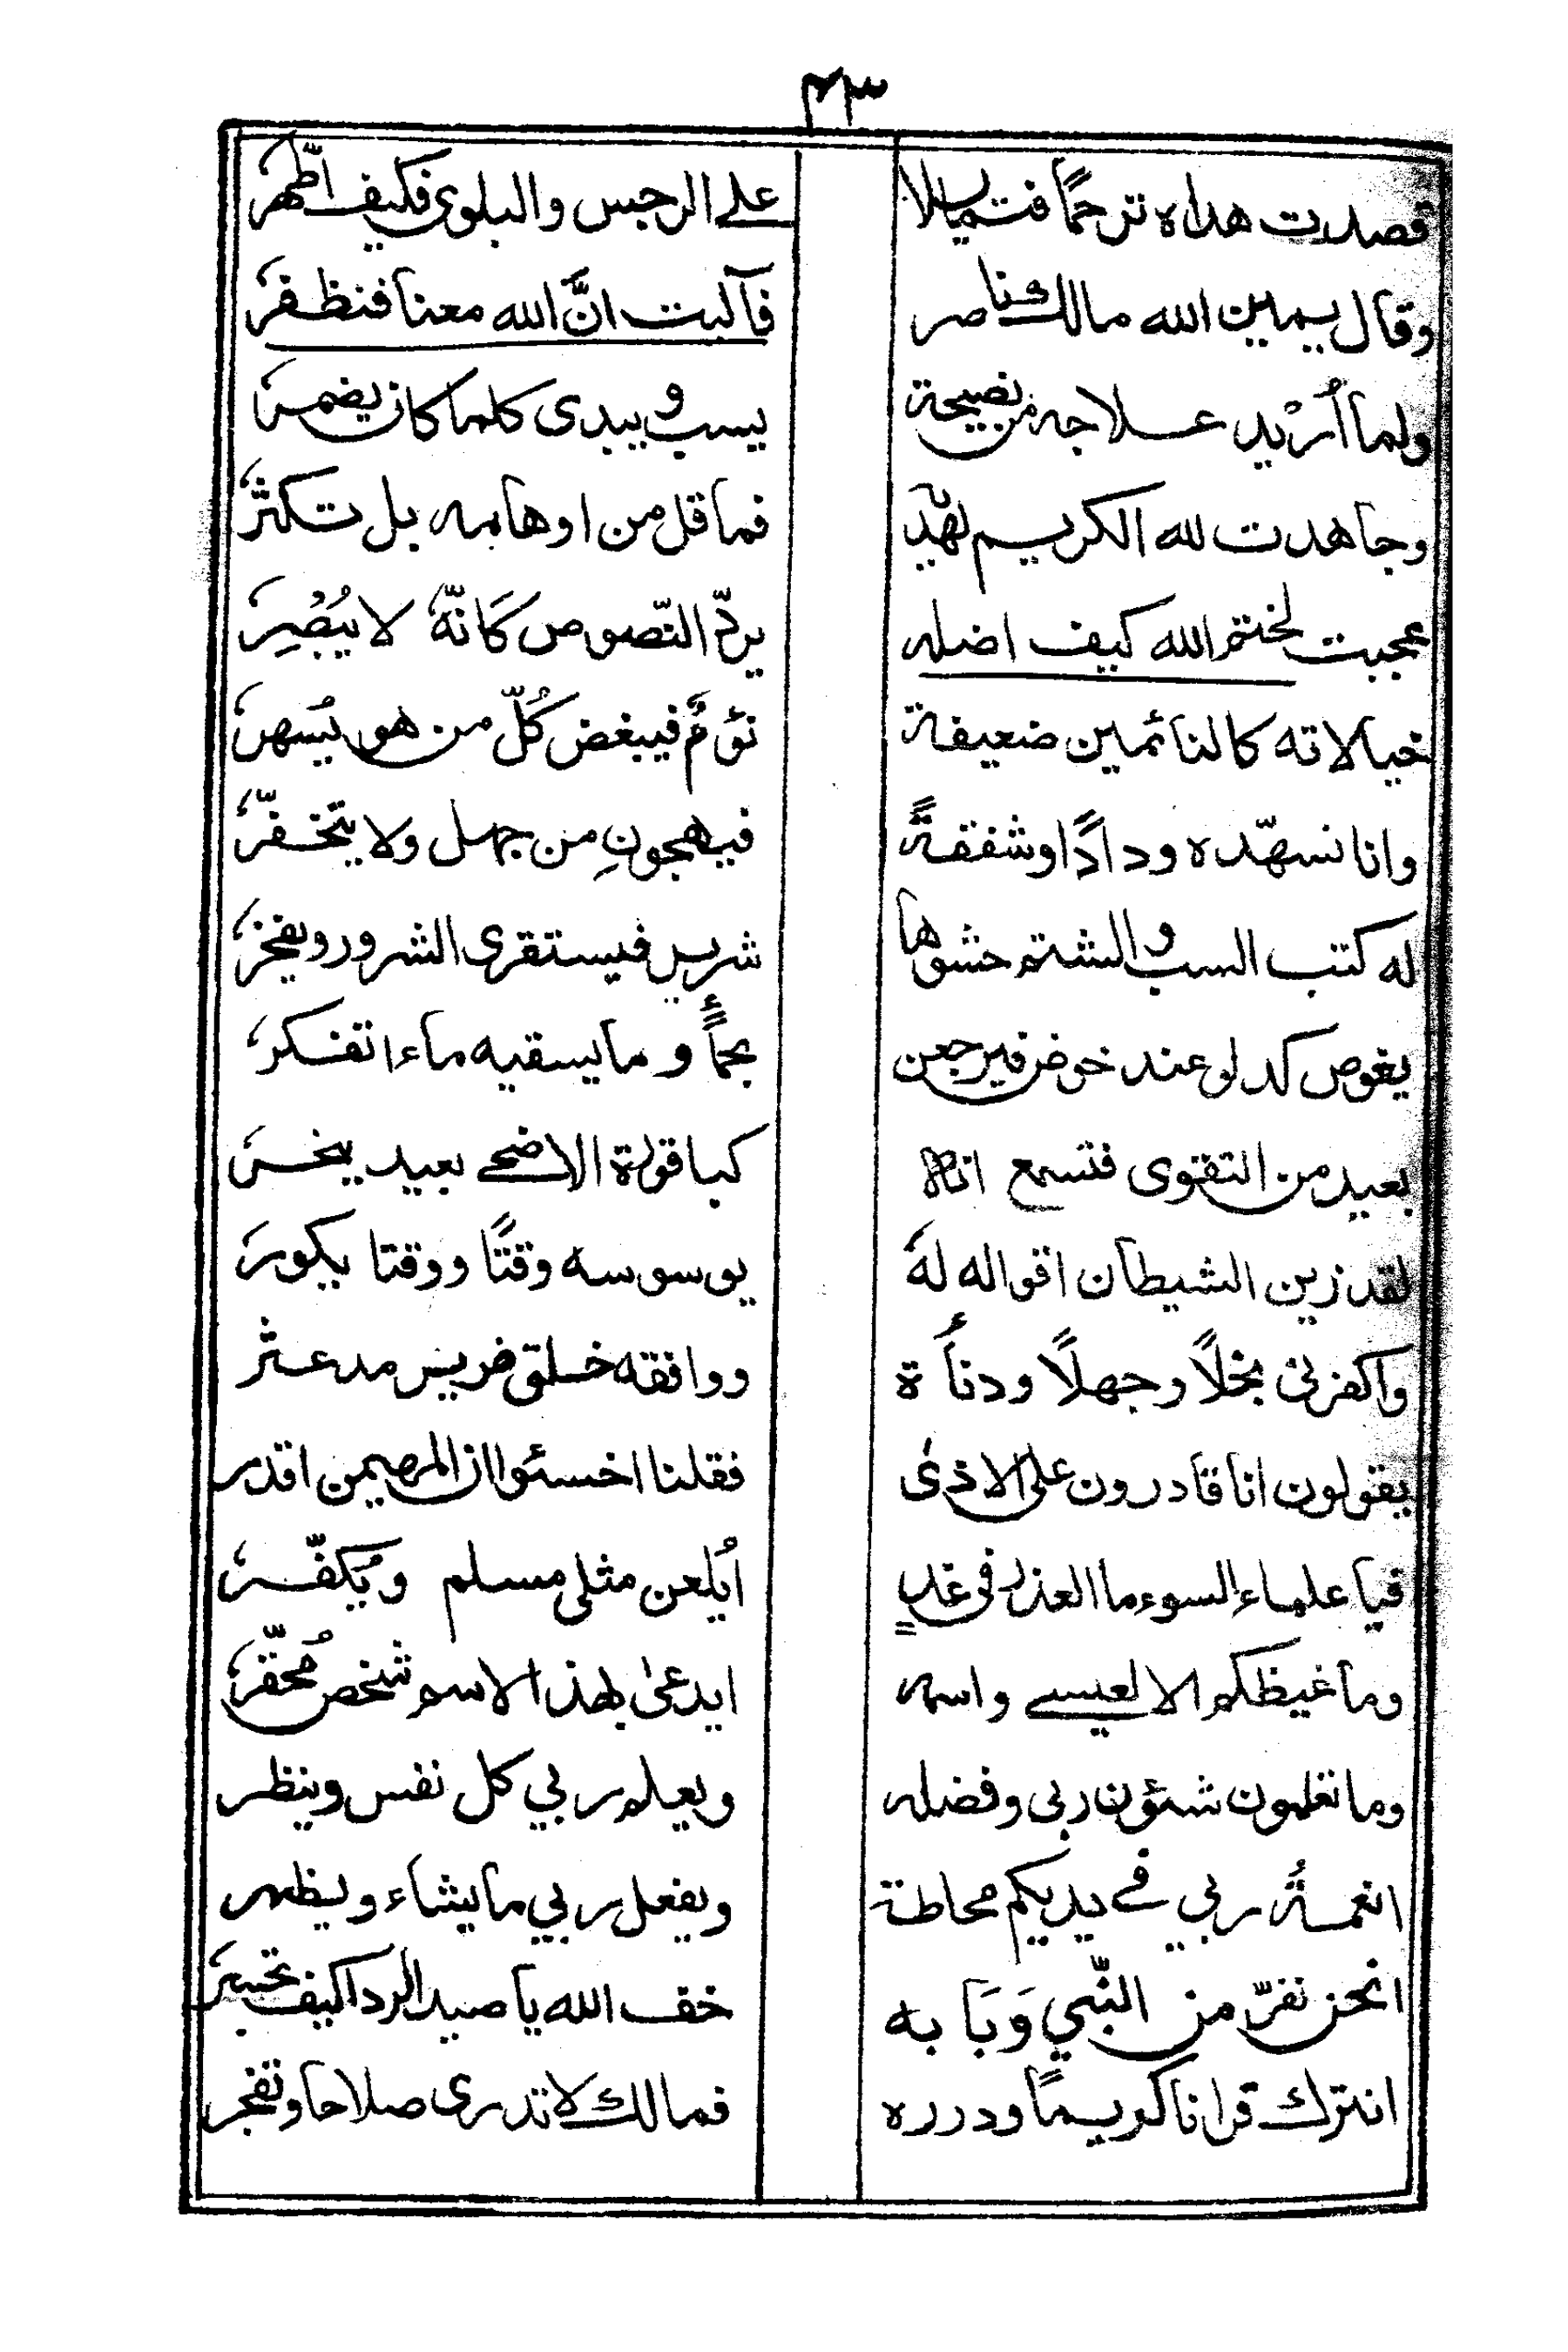 ٤٣
قصدت هداه ترحمًا فتمايلا
على الرجس والبلوى فكيف اطّهر
وقال يمين الله مالك ناصر
فآليت انَّ الله معنا فنظفر
ولما اُرِيد علاجه من نصيحة
يسب و يبدى كلما كان يضمر
وجاهدت لله الكريم لهدّيه
فما قل من اوهامه بل تكثّر
عجبت لختم الله كيف اضله
يردّ النّصوص كَانّهٗ لا يُبْصِر
خيالاته كالنائمين ضعيفة
نؤمٌ فيبغض كُلّ من هو يُسهر
وانا نسهّده ودادًا وشفقةً
فيهجونِ من جهل ولا يتخفّر
له كتب السب و الشتم حشوها
شرير فيستقرى الشرور ويفخر
يغوص كدلو عند خوض فيرجعن
بحمأٍ و ما يسقيه ماء اتفكر
بعيد من التقوى فتسمع انه
كباقورة الاضحى بعيد ينحر
لقد زين الشيطان اقواله لهٗ
يوسوسه وقتًا ووقتا يكور
واكفرنى بخلًا وجهلًا ودنأة
ووافقه خلق ضرير مدعثر
يقولون انا قادرون على الاذىٰ
فقلنا اخسئوا ان المهيمن اقدر
فيا علماء السوء ما العذر فى غدٍ
اَيُلعن مثلى مسلم ويُكفّر
وما غيظكم الا لعيسى واسمه
ايدعىٰ بهذا الاسم شخص مُحقّر
وما تعلمون شئون ربى وفضله
ويعلم ربي كل نفس وينظر
انعمةُ ربي فى يديكم محاطة
ويفعل ربي ما يشاء ويظهر
انحن نفرّ من النّبي وَبَابه
خف الله يا صيد الردا كيف تجسر
انترك قرانا كريمًا ودرره
فمالك لا تدرى صلاحا وتفجر